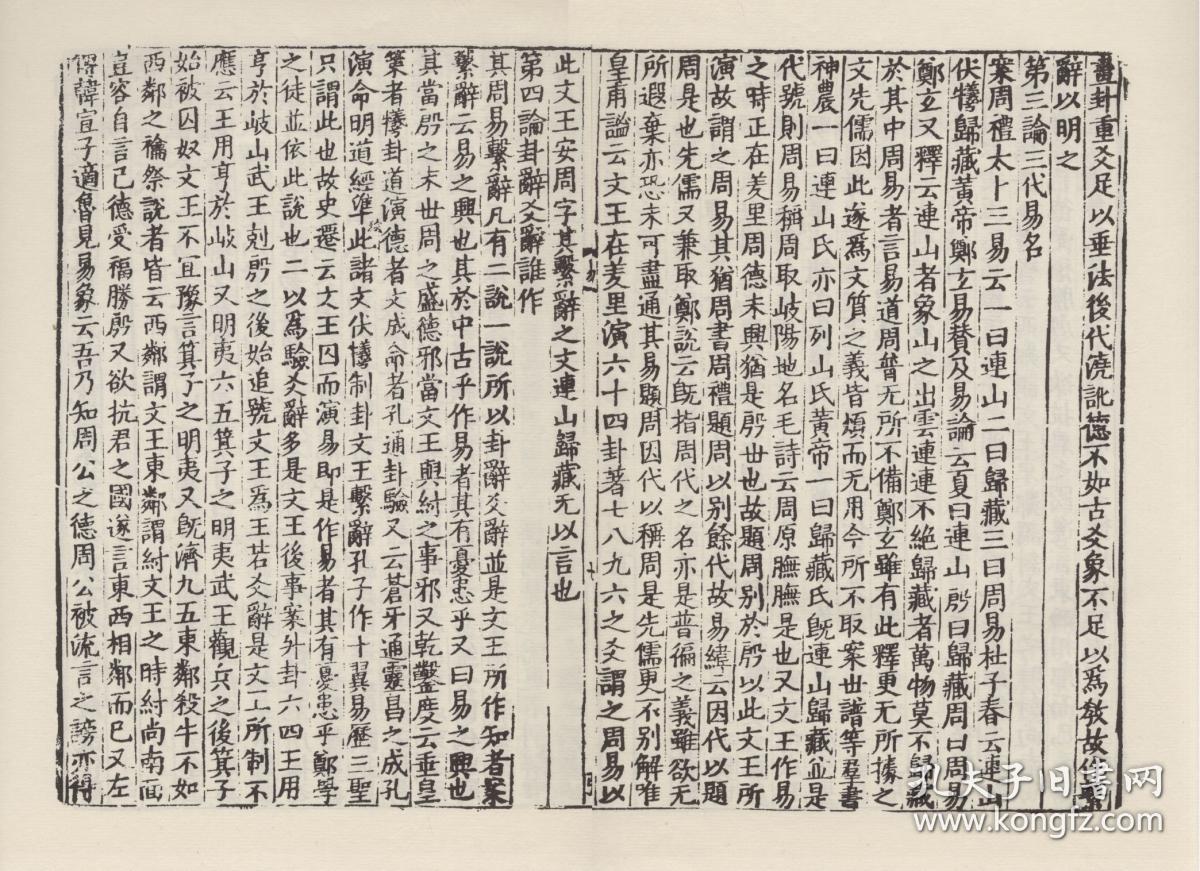 畫卦重爻足以垂法後代澆訛德不如古爻象不足以爲敎故作繫
辭以明之
第三論三代易名
案周禮太卜三易云一曰連山二曰歸藏三曰周易杜子春云連山
伏犧歸藏黃帝鄭玄易賛及易論云夏曰連山殷曰歸藏周曰周易
鄭玄又釋云連山者象山之出雲連連不絕歸藏者萬物莫不歸藏
於其中周易者言易道周普无所不備鄭玄雖有此釋更无所據之
文先儒因此遂爲文質之義皆煩而无用今所不取案世譜等羣書
神農一曰連山氏亦曰列山氏黃帝一曰歸藏氏旣連山歸藏並是
代號則周易稱周取岐陽地名毛詩云周原膴膴是也又文王作易
之時正在羑里周德未興猶是殷世也故題周别於殷以此文王所
演故謂之周易其猶周書周禮題周以别餘代故易緯云因代以題
周是也先儒又兼取鄭說云旣指周代之名亦是普徧之義雖欲无
所遐棄亦恐未可盡通其易題周因代以稱周是先儒更不别解唯
皇甫謐云文王在羑里演六十四卦著七八九六之爻謂之周易以
易
此文王安周字其繫辭之文連山歸藏无以言也
第四論卦辭爻辭誰作
其周易繫辭凡有二說一說所以卦辭爻辭並是文王所作知者案
繫辭云易之興也其於中古乎作易者其有憂患乎又曰易之興也
其當殷之末世周之盛德邪當文王與紂之事邪又乾鑿度云垂皇
策者犧卦道演德者文成命者孔通卦驗又云蒼牙通靈昌之成孔
演命明道經準此諸文伏犧制卦文王繫辭孔子作十翼易歷三聖
只謂此也故史遷云文王囚而演易即是作易者其有憂患乎鄭學
之徒並依此說也二以爲驗爻辭多是文王後事案外卦六四王用
亨於岐山武王剋殷之後始追號文王爲王若爻辭是文王所制不
應云王用亨於岐山又明夷六五箕子之明夷武王觀兵之後箕子
始被囚奴文王不宜豫言箕子之明夷又旣濟九五東鄰殺牛不如
西鄰之禴祭說者皆云西鄰謂文王東鄰謂紂文王之時紂尚南面
豈容自言己德受福勝殷又欲抗君之國遂言東西相鄰而已又左
傳韓宣子適魯見易象云吾乃知周公之德周公被流言之謗亦得
孔夫子旧書网
www.kongfz.com